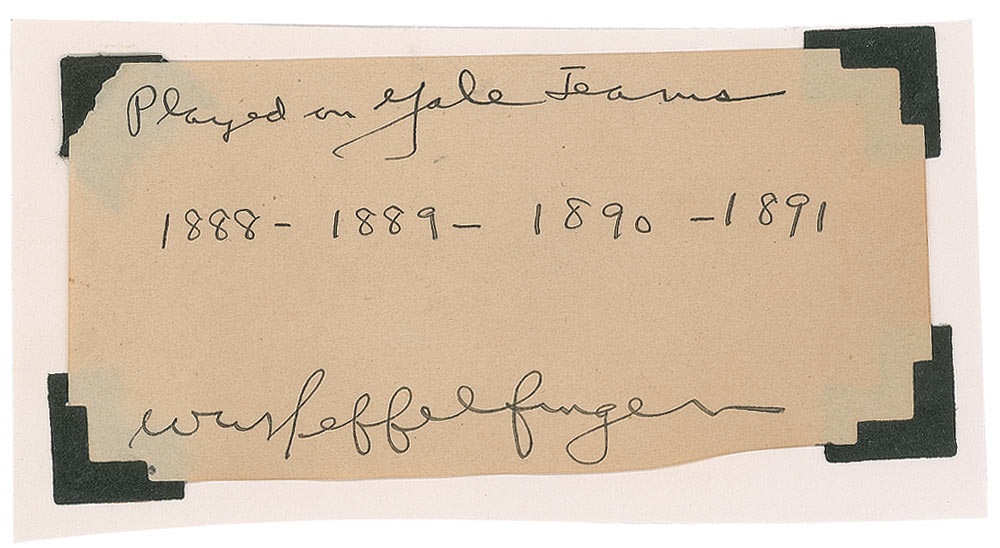 Played on Yale Teams
1888 - 1889 - 1890 - 1891
WW Heffelfinger